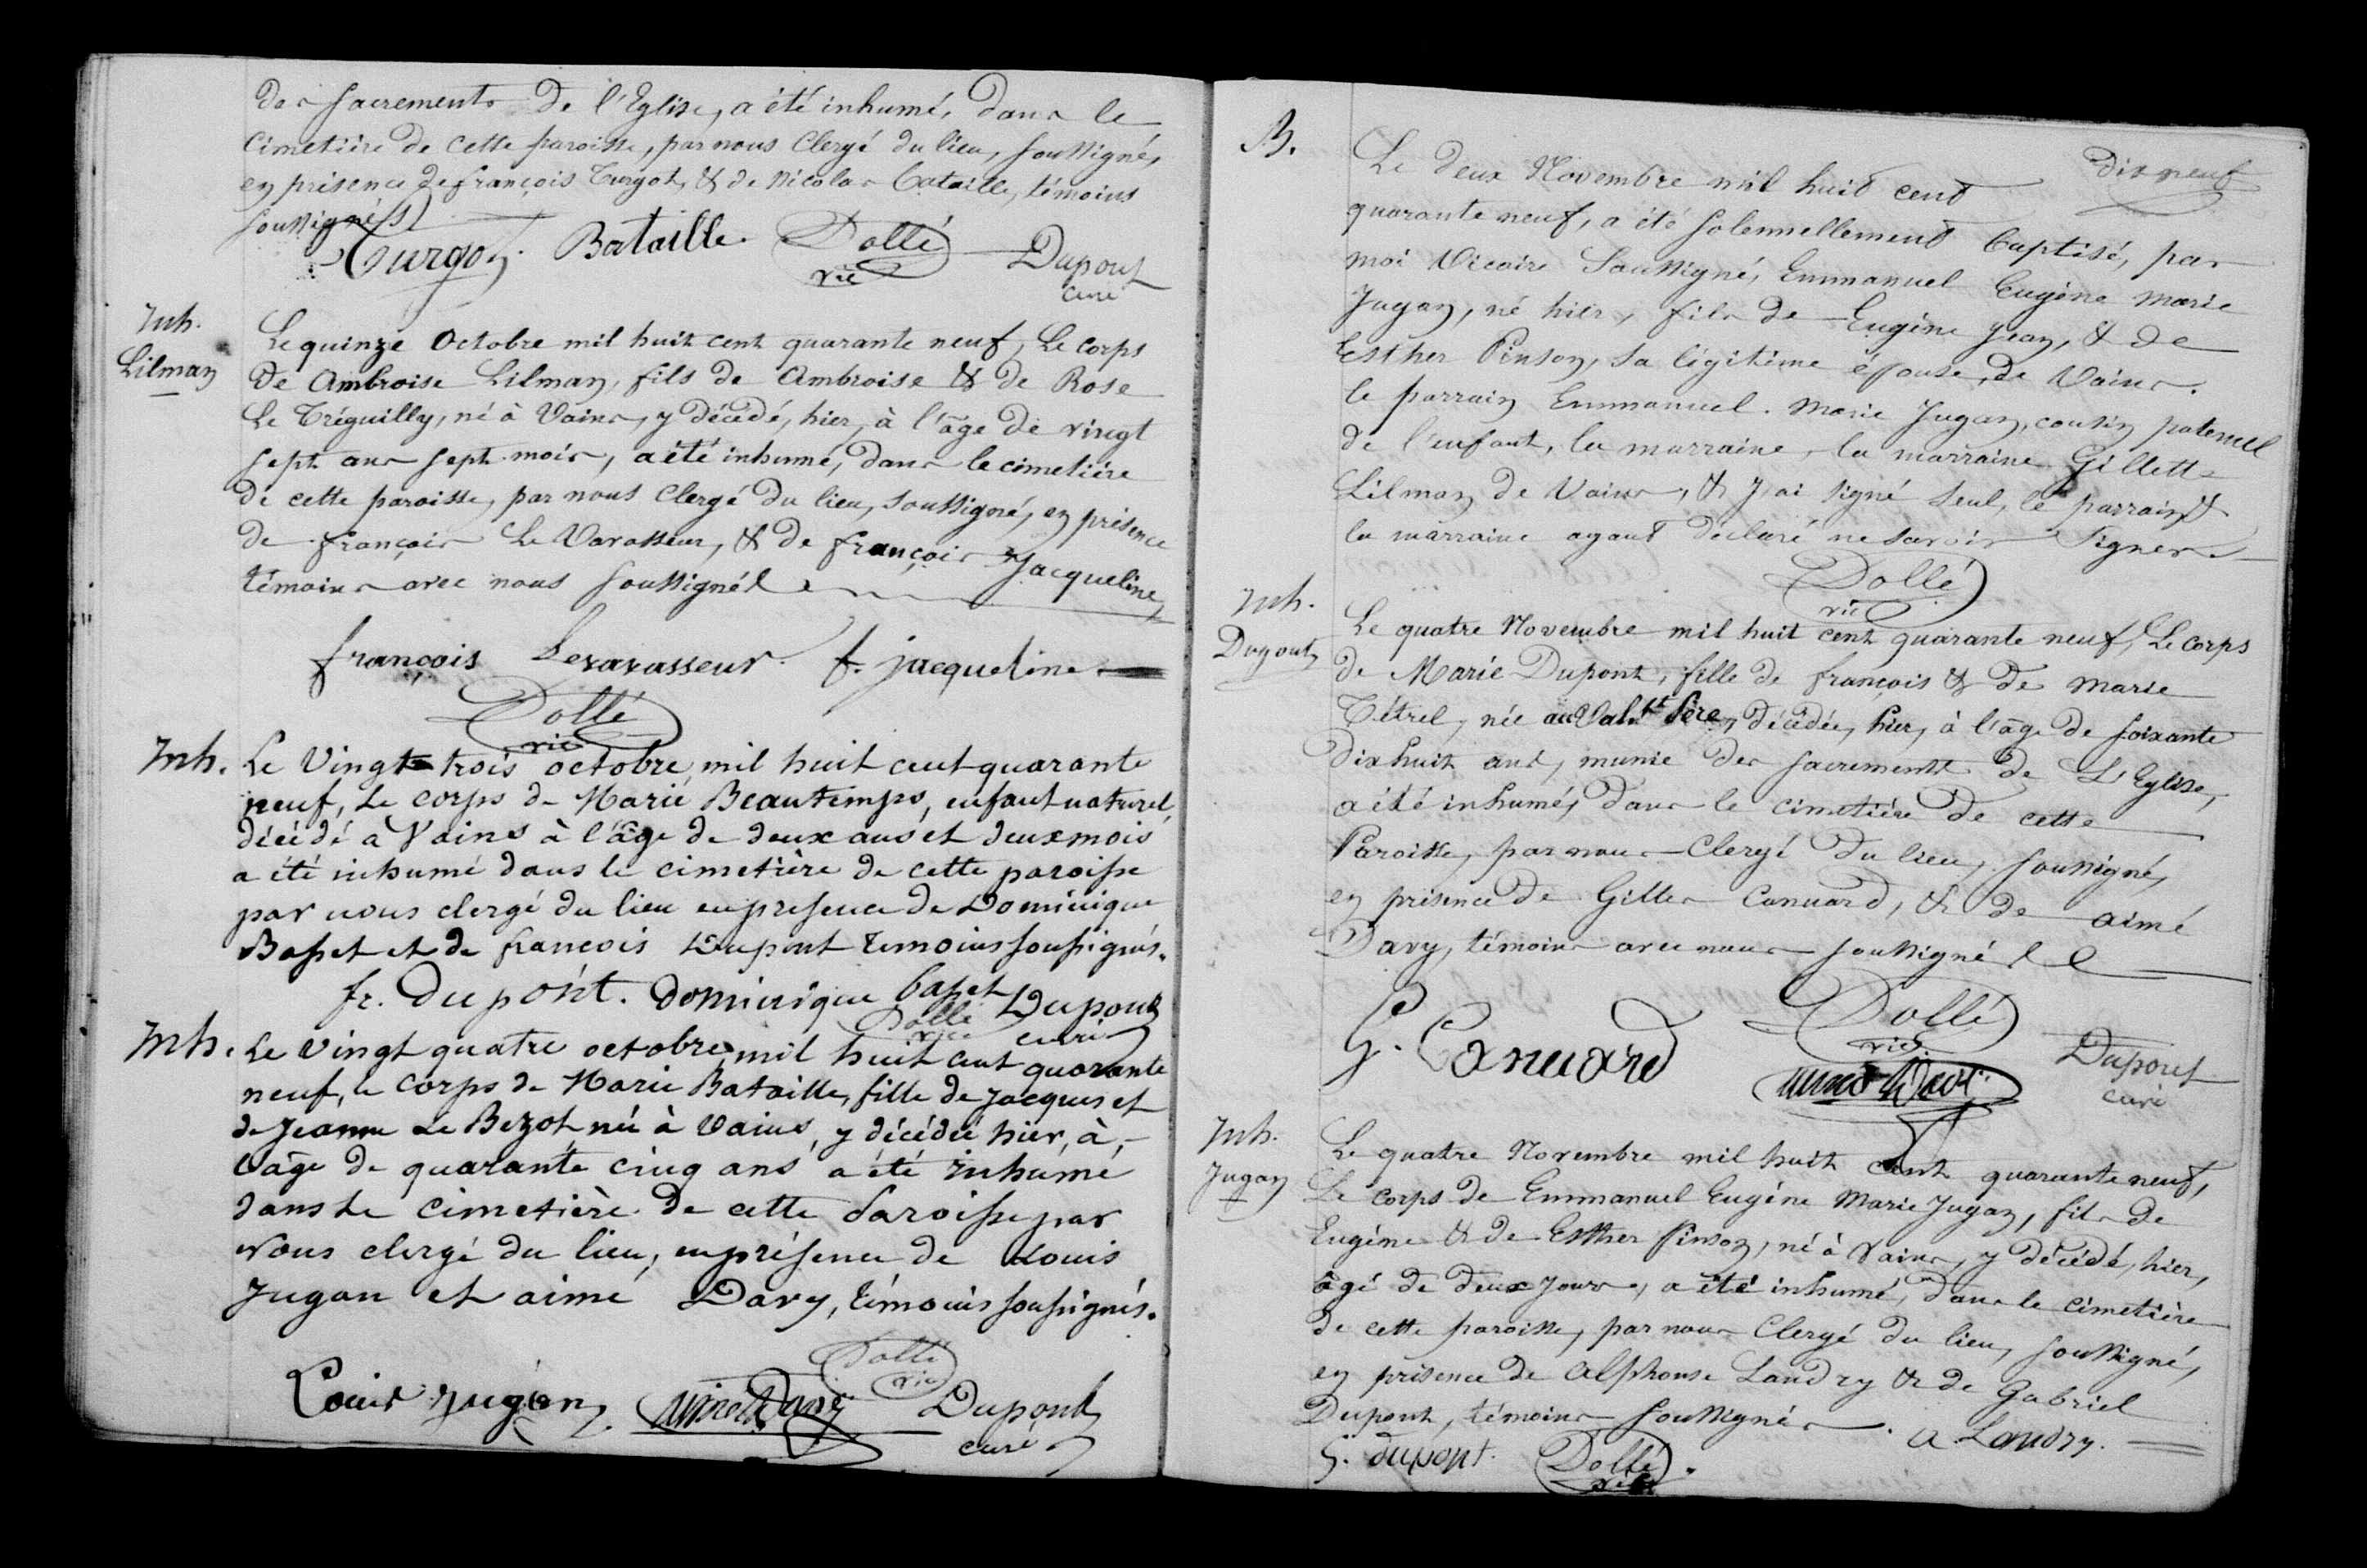 des sacrements de l'Eglise, a été inhumé, dans le
Cimetière de cette paroisse, par nous Clergé du lieu, soussigné,
en présence de françois Turgot, & de Nicolas Bataille, témoins
soussigné(s)
Turgot. Bataille. Dollé
vic
Dupont
curé
Inh.
Lilman
Le quinze Octobre mil huit cent quarante neuf, Le corps
de Ambroise Lilman, fils de Ambroise & de Rose
Le Tréguilly, né à Vains, y décédé, hier, à l'âge de vingt
sept ans sept mois, a été inhumé, dans le cimetière
de cette paroisse, par nous Clergé du lieu, soussigné, en présence
de françois Le Vavasseur, & de françois Jacqueline,
témoins avec nous soussignés
françois Levavasseur. f. jacqueline
Dollé
vic
Inh.
Le Vingt trois octobre, mil huit cent quarante
neuf, Le corps de Marie Beautemps, enfant naturel,
décédé à Vains à l'âge de deux ans et deux mois
a été inhumé dans le cimetière de cette paroisse
par nous clergé du lieu en présence de Dominique
Basset et de françois Dupont témoins soussignés.
fr. dupont. Dominique basset Dupont
Dollé
vic curé
Inh.
Le vingt quatre octobre, mil huit cent quarante
neuf, le corps de Marie Bataille, fille de Jacques et
de Jeanne Le Bezot, née à Vains, y décédée hier, à
l'âge de quarante cinq ans a été inhumé
dans le cimetière de cette Paroisse par
Nous clergé du lieu, en présence de Louis
Jugan et aimé Davy, témoins soussignés.
Louis jugan, aimé Davy
Dollé
vic
Dupont
curé
dix neuf
B.
Le deux Novembre mil huit cent
quarante neuf, a été solennellement baptisé, par
moi Vicaire Soussigné, Emmanuel Eugène marie
Jugan, né hier, fils de Eugène Jean, & de
Esther Pinson, sa légitime épouse, de Vains.
le parrain Emmanuel. Marie Jugan, cousin paternel
de l'enfant, la marraine, la marraine Gillette
Lilman de Vains, & j'ai signé seul, le parrain &
la marraine ayant déclaré ne savoir signer.
Dollé
vic
Inh.
Dupont
Le quatre Novembre mil huit cent quarante neuf, Le corps
de Marie Dupont, fille de françois & de Marie
Tétrel, née au Val St Père, décédée, hier, à l'âge de soixante
dix huit ans, munie des sacrements de L'Eglise,
a été inhumé, dans le cimetière de cette
Paroisse, par nous Clergé du lieu, soussigné,
en présence de Gilles Canuard, & de aimé
Davy, témoins avec nous soussignés
G. Canuard
Dollé
vic
aimé Davi
Dupont
curé
Inh.
Jugan
Le quatre Novembre mil huit cent quarante neuf,
Le corps de Emmanuel Eugène Marie Jugan, fils de
Eugène & de Esther Pinson, né à Vains, y décédé, hier,
âgé de deux jours, a été inhumé, dans le cimetière
de cette paroisse, par nous Clergé du lieu, soussigné,
en présence de Alphonse Landry & de Gabriel
Dupont, témoins soussignés. a Landry.
G. dupont. Dollé
vic